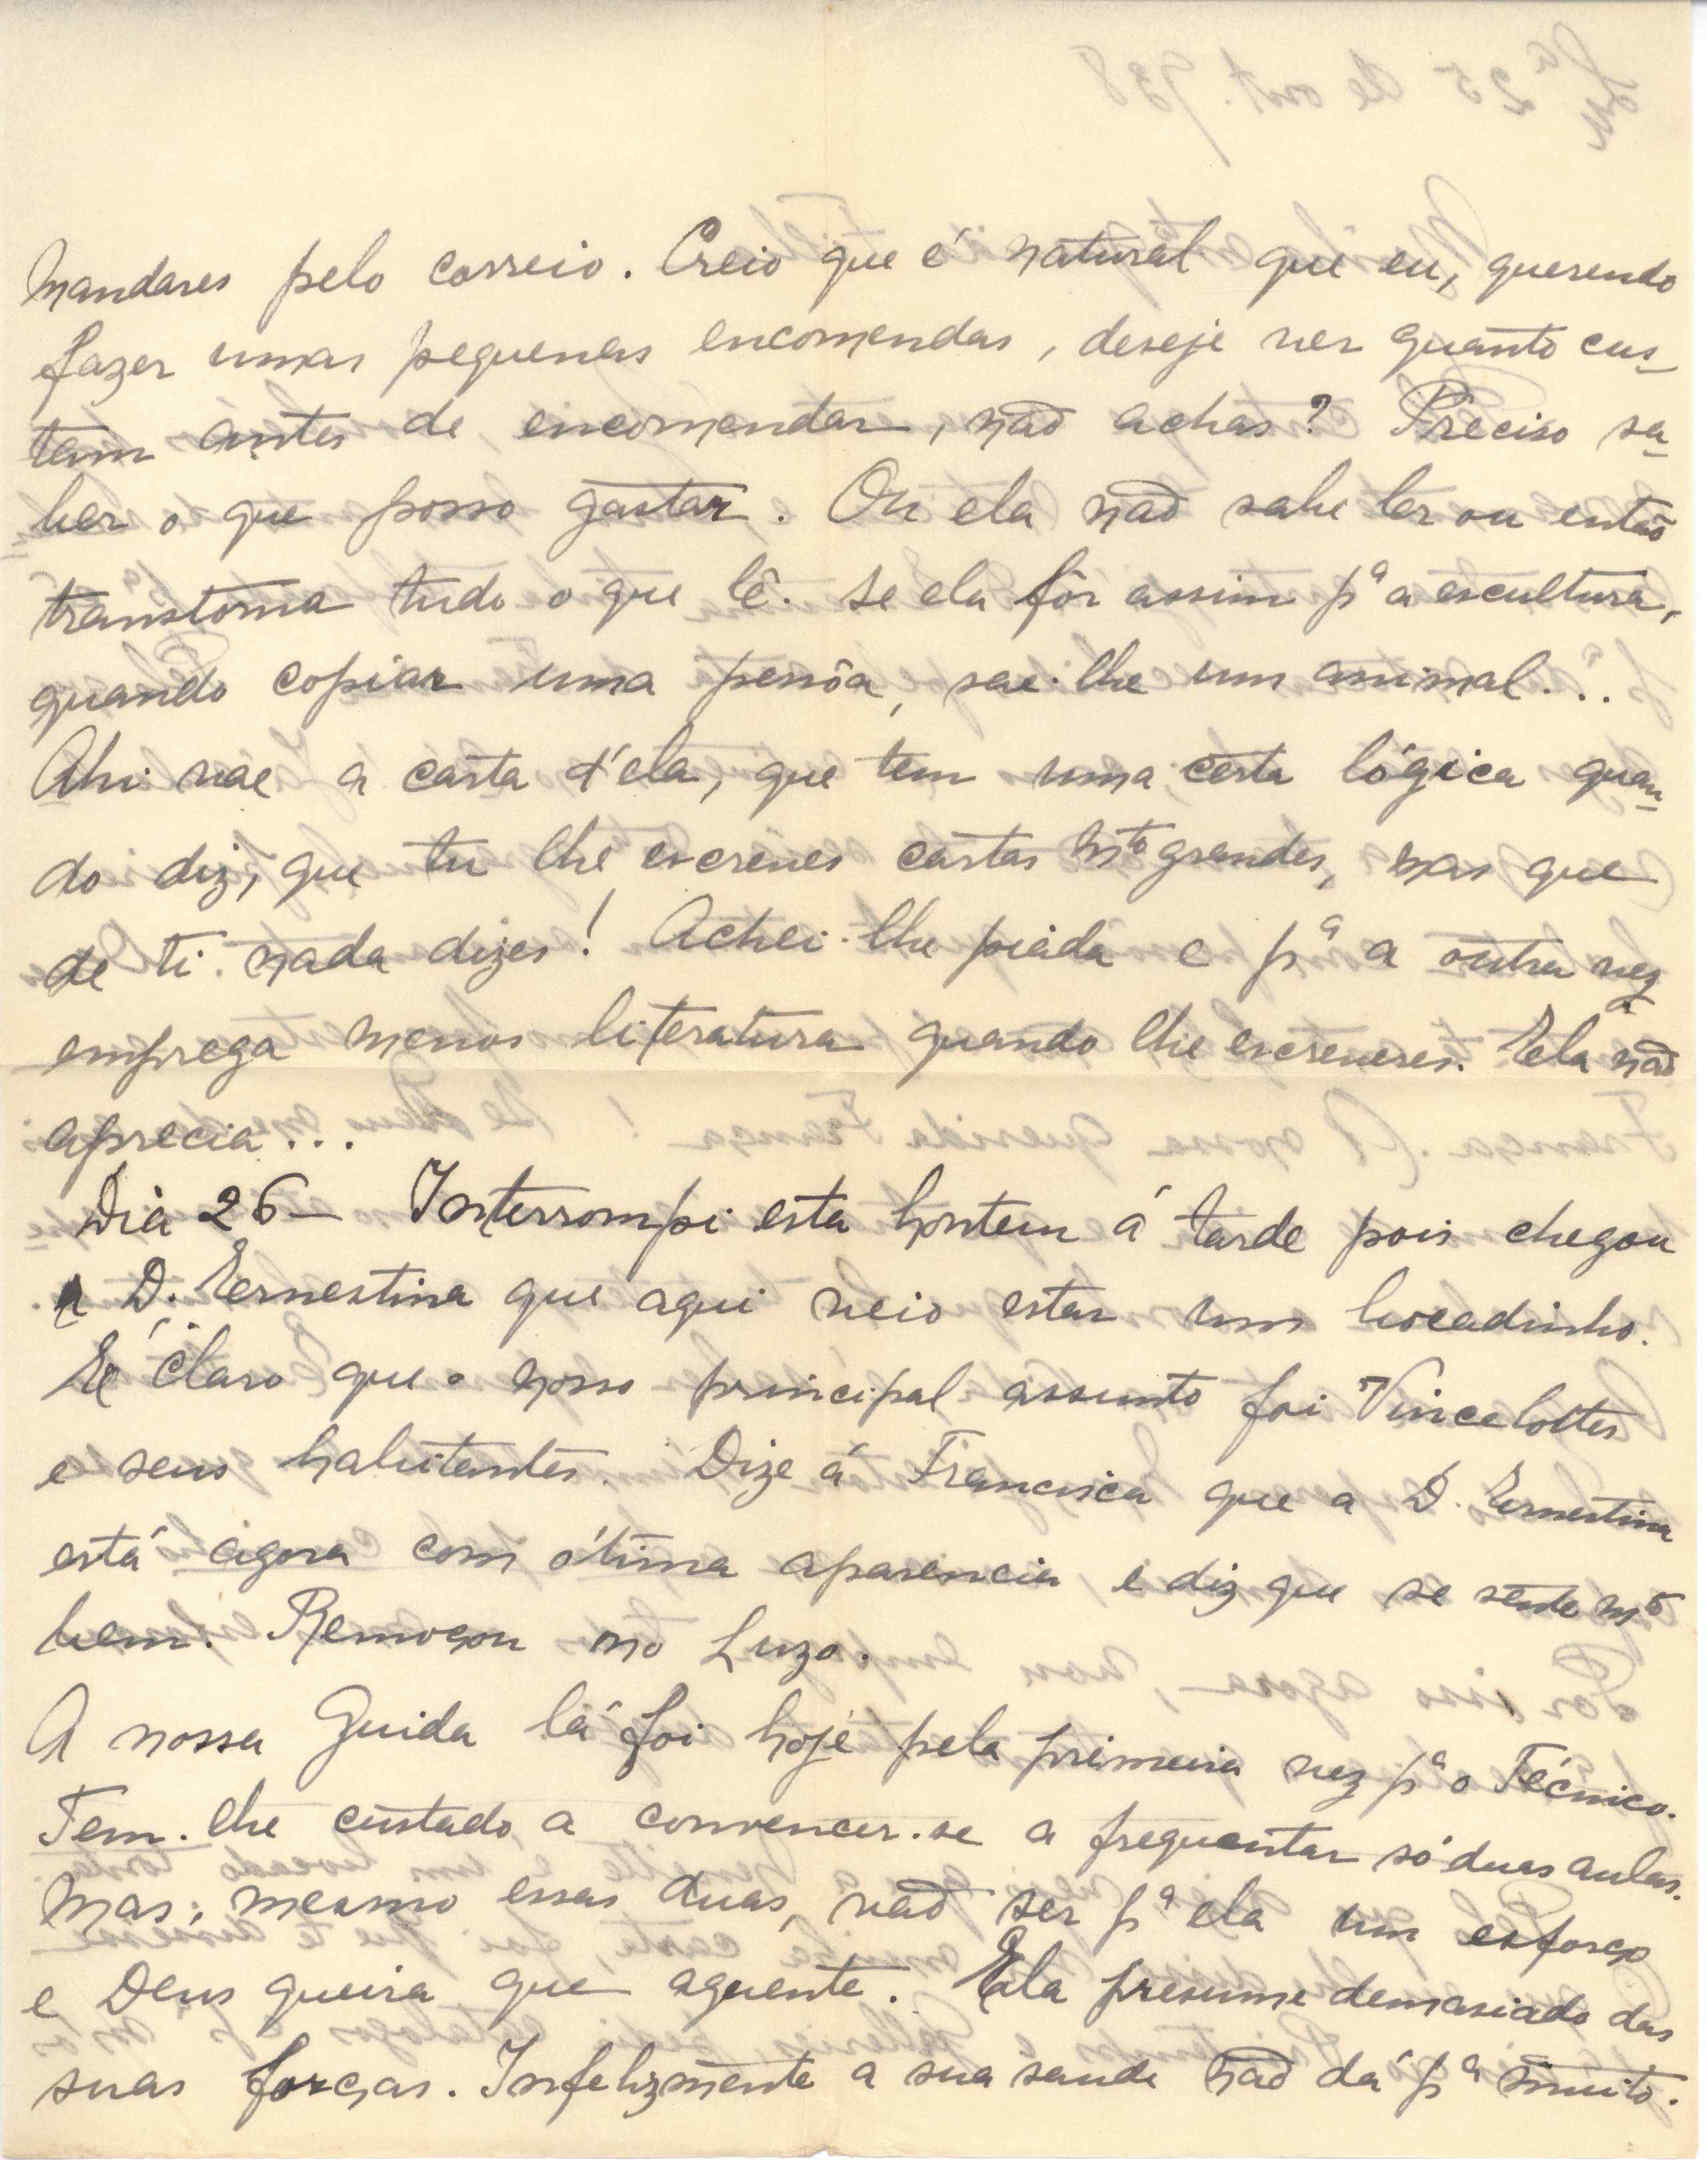 mandares pelo correio. Creio que é natural que eu, querendo
fazer umas pequenas encomendas, deseje ver quanto cus-
tam antes de encomendar, não achas? Preciso sa-
ber o que posso gastar. Ou ela não sabe ler ou então
transtorna tudo o que lê. Se ela fôr assim pª a escultura,
quando copiar uma pessôa, sae-lhe um animal...
Ahi vae a carta d'ela, que tem uma certa lógica quan-
do diz, que tu lhe escreves cartas mto grandes, mas que
de ti nada dizes! Achei-lhe piada e pª a outra vez
emprega menos literatura quando lhe escreveres. Ela não
aprecia...
Dia 26 — Interrompi esta hontem á tarde pois chegou
a D. Ernestina que aqui veio estar um bocadinho.
É claro que o nosso principal assunto foi Vincelottes
e seus habitantes. Dize á Francisca que a D. Ernestina
está agora com ótima aparencia e diz que se sente mto
bem. Remoçou no Luzo.
A nossa Guida lá foi hoje pela primeira vez pª o Técnico.
Tem-lhe custado a convencer-se a frequentar só duas aulas.
Mas, mesmo essas duas, vão ser pª ela um esforço
e Deus queira que aguente. Ela presume demasiado das
suas forças. Infelizmente a sua saude não dá pª muito.